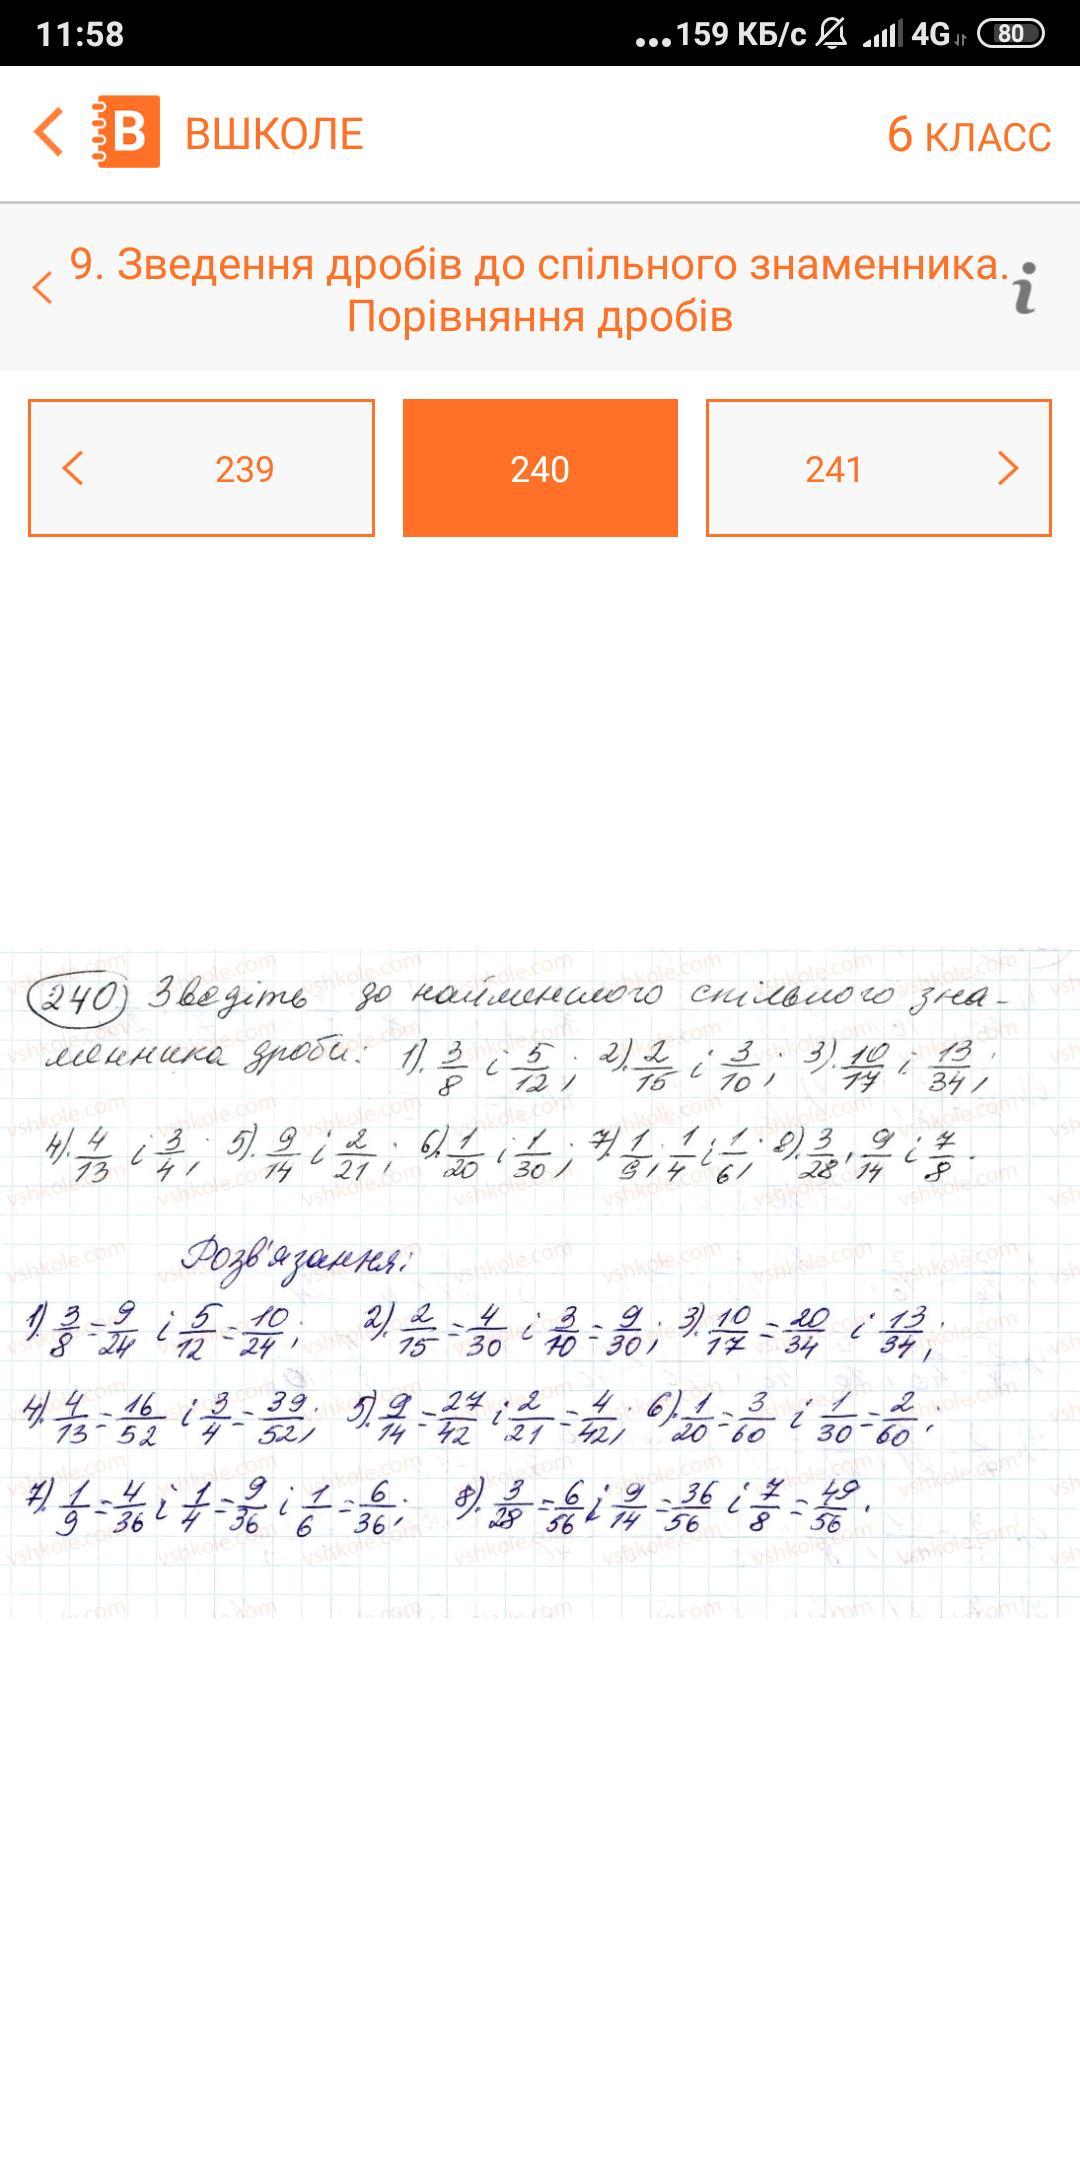 11:58
...159 КБ/с 4G 80
В ВШКОЛЕ
6 КЛАСС
9. Зведення дробів до спільного знаменника.
Порівняння дробів
239
240
241
240) Зведіть до найменшого спільного зна-
менника дроби: 1). 3/8 і 5/12; 2). 2/15 і 3/10; 3). 10/17 і 13/34;
4). 4/13 і 3/4; 5). 9/14 і 2/21; 6). 1/20 і 1/30; 7). 1/9; 1/4 і 1/6; 8). 3/28, 9/14 і 7/8.
Розв'язання:
1). 3/8 = 9/24 і 5/12 = 10/24; 2). 2/15 = 4/30 і 3/10 = 9/30; 3). 10/17 = 20/34 і 13/34;
4). 4/13 = 16/52 і 3/4 = 39/52; 5). 9/14 = 27/42 і 2/21 = 4/42; 6). 1/20 = 3/60 і 1/30 = 2/60;
7). 1/9 = 4/36 і 1/4 = 9/36 і 1/6 = 6/36; 8). 3/28 = 6/56 і 9/14 = 36/56 і 7/8 = 49/56.
vshkole.com